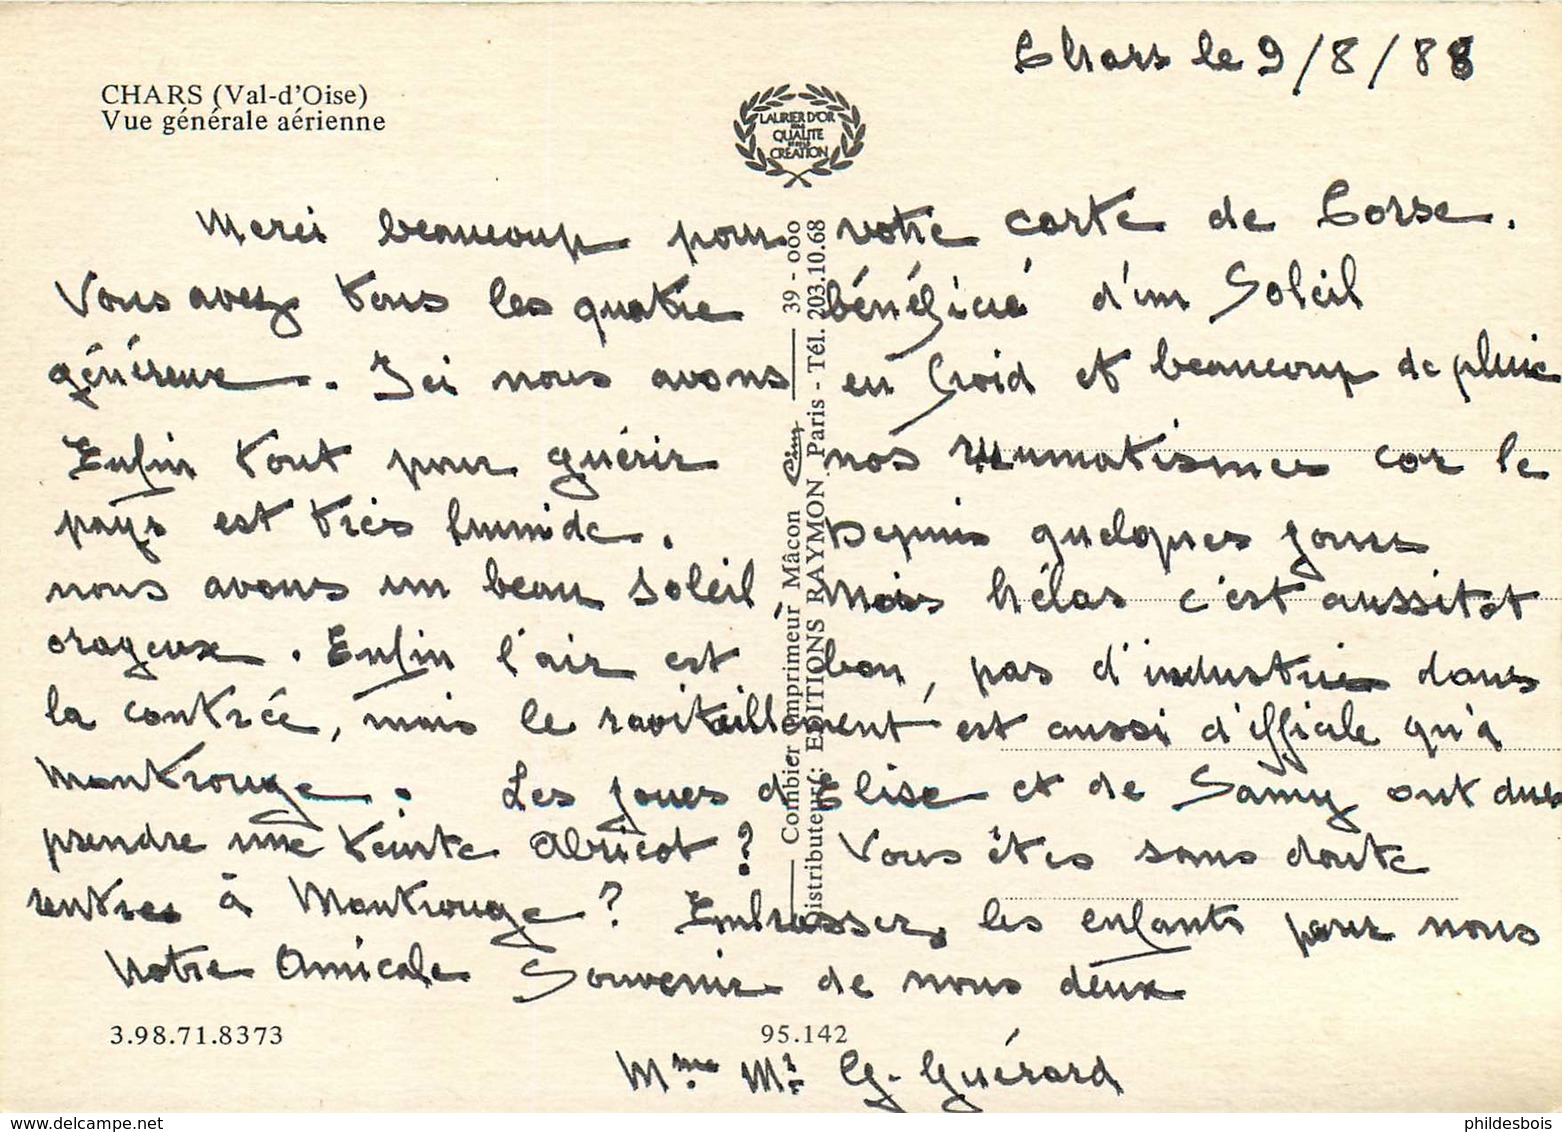 Chars le 9/8/88
CHARS (Val-d'Oise)
Vue générale aérienne
LAURIER D'OR
QUALITE
CRÉATION
Merci beaucoup pour votre carte de Corse.
Vous avez tous les quatre bénéficié d'un Soleil
généreux. Ici nous avons eu froid et beaucoup de pluie
Enfin tout pour guérir nos rhumatismes car le
pays est très humide. Depuis quelques jours
nous avons un beau soleil, mais hélas c'est aussitot
orageux. Enfin l'air est bon, pas d'industries dans
la contrée, mais le ravitaillement est aussi difficile qu'à
Montrouge. Les joues d'Elise et de Samy ont dues
prendre une teinte Abricot? Vous êtes sans doute
rentres à Montrouge? Embrassez les enfants pour nous
Notre Amicale Souvenir de nous deux
Mme Mr G. Guérard
3.98.71.8373
95.142
Combier Imprimeur Mâcon Cim 39 - 000
Distributeur : EDITIONS RAYMON, Paris - Tél. 203.10.68
delcampe.net
phildesbois